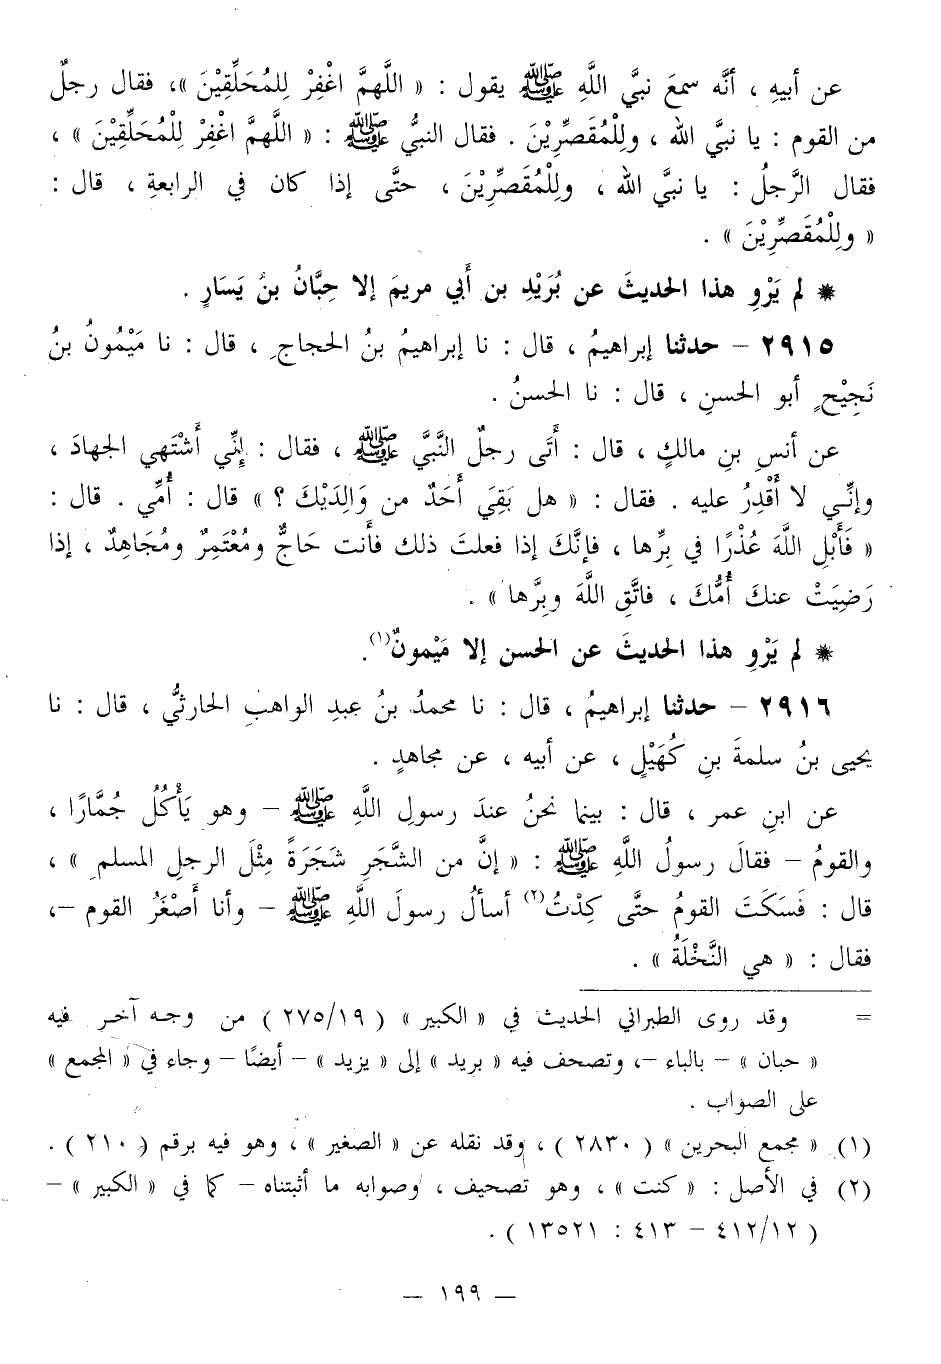 عن أبيهِ ، أنَّه سمعَ نبيَّ اللَّهِ ﷺ يقول : « اللَّهمَّ اغْفِرْ لِلمُحَلِّقِيْنَ »، فقال رجلٌ
من القوم : يا نبيَّ الله ، ولِلْمُقَصِّرِيْنَ . فقال النبيُّ ﷺ : « اللَّهمَّ اغْفِرْ لِلْمُحَلِّقِيْنَ » ،
فقال الرَّجلُ : يا نبيَّ الله ، ولِلْمُقَصِّرِيْنَ ، حتَّى إذا كان في الرابعةِ ، قال :
« ولِلْمُقَصِّرِيْنَ » .
* لم يَرْوِ هذا الحديثَ عن بُرَيْدِ بن أَبي مريمَ إلا حِبَّانُ بنُ يَسَارٍ .
٢٩١٥ – حدثنا إبراهيمُ ، قال : نا إبراهيمُ بنُ الحجاجِ ، قال : نا مَيْمُونُ بنُ
نَجِيْحٍ أبو الحسنِ ، قال : نا الحسنُ .
عن أنسِ بنِ مالكٍ ، قال : أَتَى رجلٌ النَّبيَّ ﷺ ، فقال : إنِّي أَشْتَهِي الجهادَ ،
وإنِّي لا أَقْدِرُ عليه . فقال : « هل بَقِيَ أَحَدٌ من وَالِدَيْكَ ؟ » قال : أُمِّي . قال :
« فَأَبْلِ اللَّهَ عُذْرًا في بِرِّها ، فإنَّكَ إذا فعلتَ ذلك فأَنت حَاجٌّ ومُعْتَمِرٌ ومُجَاهِدٌ ، إذا
رَضِيَتْ عنكَ أُمُّكَ ، فاتَّقِ اللَّهَ وبِرَّها » .
* لم يَرْوِ هذا الحديثَ عن الحسن إلا مَيْمونٌ(١).
٢٩١٦ – حدثنا إبراهيمُ ، قال : نا محمدُ بنُ عبدِ الواهبِ الحارثيُّ ، قال : نا
يحيى بنُ سلمةَ بنِ كُهَيْلٍ ، عن أبيه ، عن مجاهدٍ .
عن ابنِ عمر ، قال : بينما نحنُ عندَ رسولِ اللَّهِ ﷺ – وهو يَأْكُلُ جُمَّارًا ،
والقومُ – فقالَ رسولُ اللَّهِ ﷺ : « إنَّ من الشَّجَرِ شَجَرَةً مِثْلَ الرجلِ المسلمِ » ،
قال : فَسَكَتَ القومُ حتَّى كِدْتُ(٢) أسألُ رسولَ اللَّهِ ﷺ – وأنا أَصْغَرُ القوم –،
فقال : « هي النَّخْلَةُ » .
= وقد روى الطبراني الحديث في « الكبير » ( ٢٧٥/١٩ ) من وجه آخر فيه
« حبان » – بالباء –، وتصحف فيه « بريد » إلى « يزيد » – أيضًا – وجاء في « المجمع »
على الصواب .
(١) « مجمع البحرين » ( ٢٨٣٠ ) ، وقد نقله عن « الصغير » ، وهو فيه برقم ( ٢١٠ ) .
(٢) في الأصل : « كنت » ، وهو تصحيف ، وصوابه ما أثبتناه – كما في « الكبير » –
( ٤١٢/١٢ – ٤١٣ : ١٣٥٢١ ) .
— ١٩٩ —